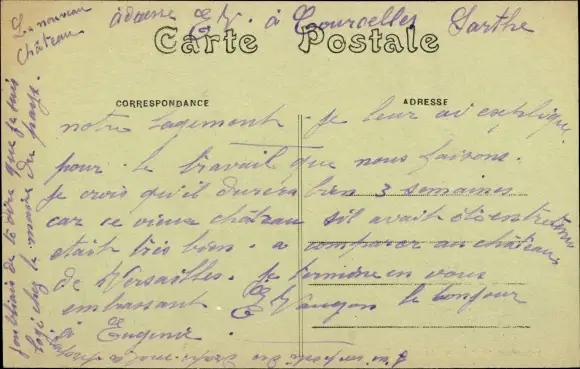 Le nouveau
château
adresse E V. à Courcelles Sarthe
Carte Postale
CORRESPONDANCE
ADRESSE
notre Lagement. je leur ai expliqué
pour le travail que nous faisons.
je crois qu'il durera bien 3 semaines
car ce vieux château s'il avait été entretenu
était très bien. a comparer au château
de Versailles. je termine en vous
embrassant le bonjour
à Eugenie.
joubliais de te dire que je suis
logé chez le maire du pays.